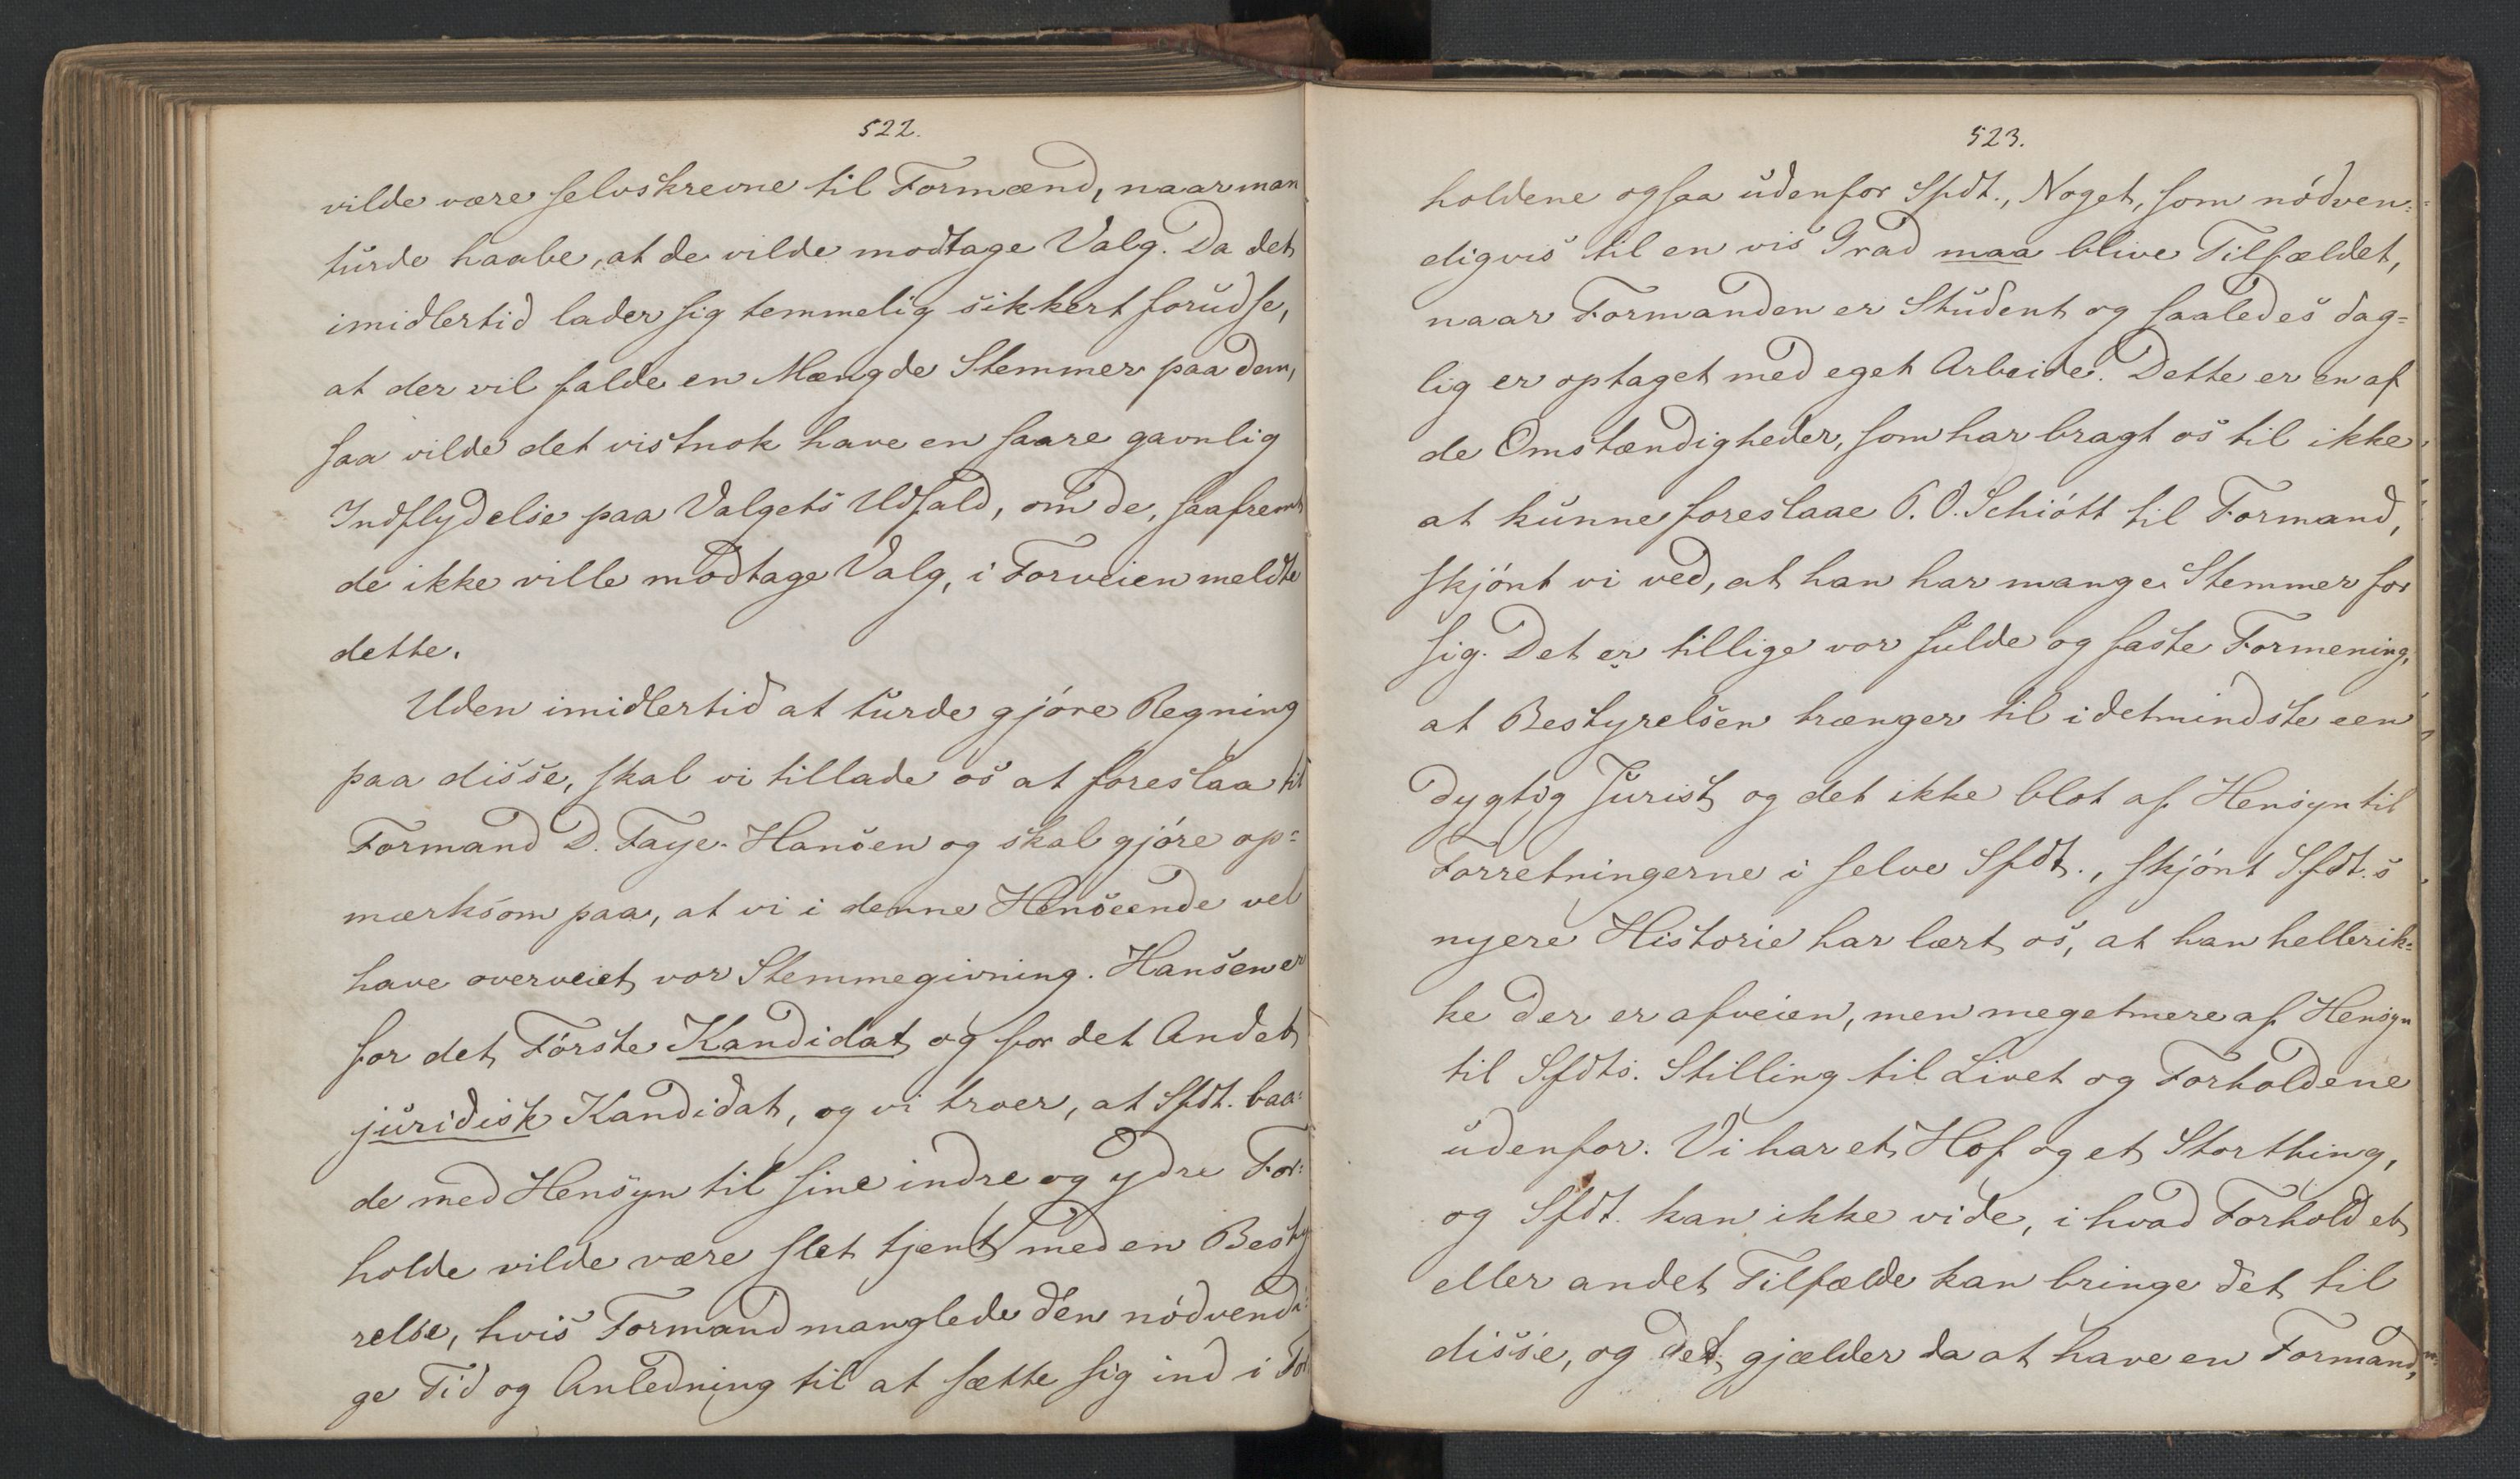 522.
vilde være selvskrevne til Formænd, naar man
turde haabe, at de vilde modtage Valg. Da det
imidlertid lader sig temmelig sikkert forudse,
at der vil falde en Mængde Stemmer paa dem,
saa vilde det vistnok have en saare gavnlig
Indflydelse paa Valgets Udfald, om de, saafremt
de ikke ville modtage Valg, i Forveien meldte
dette.
Uden imidlertid at turde gjöre Regning
paa disse, skal vi tillade os at foreslaa til
Formand D. Faye-Hansen og skal gjöre op=
mærksom paa, at vi i denne Henseende vel
have overveiet vor Stemmegivning. Hansen er
for det Förste Kandidat og for det Andet
juridisk Kandidat, og vi troer, at Sfdt. baa=
de med Hensyn til sine indre og ydre For=
holde vilde være slet tjent med en Besty
relse, hvis Formand manglede den nödvendi=
ge Tid og Anledning til at sætte sig ind i For
523.
holdene ogsaa udenfor Sfdt., Noget, som nödven=
digvis til en vis Grad maa blive Tilfældet,
naar Formanden er Student og saaledes dag=
lig er optaget med eget Arbeide. Dette er en af
de Omstændigheder, som har bragt os til ikke
at kunne foreslaae P. O. Schiött til Formand,
skjönt vi ved, at han har mange Stemmer for
sig. Det er tillige vor fulde og faste Formening,
at Bestyrelsen trænger til i det mindste een
dygtig Jurist og det ikke blot af Hensyn til
Forretningerne i selve Sfdt., skjönt Sfdt.s
nyere Historie har lært os, at han heller ik=
ke der er afveien, men meget mere af Hensyn
til Sfdts. Stilling til Livet og Forholdene
udenfor. Vi har et Hof og et Storthing,
og Sfdt. kan ikke vide, i hvad Forhold et
eller andet Tilfælde kan bringe det til
disse, og det gjælder da at have en Formand,